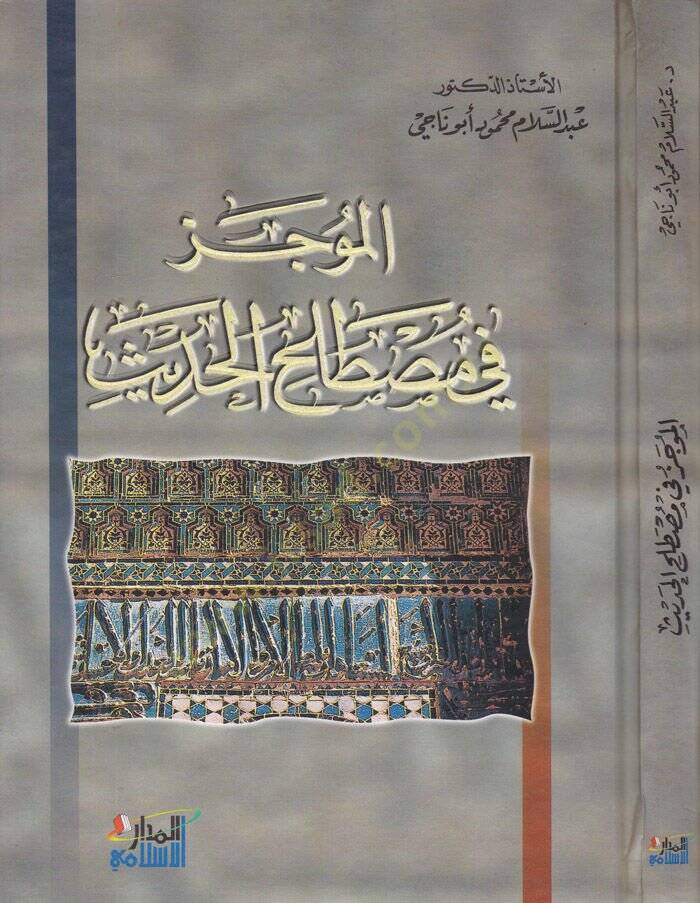 الأستاذ الدكتور
عبد السلام محمود أبو ناجي
المُوجَز
في مُصْطَلح الحَدِيث
المدار
الإسلامي
د. عبد السلام محمود أبو ناجي
الموجز في مصطلح الحديث
المدار
الإسلامي